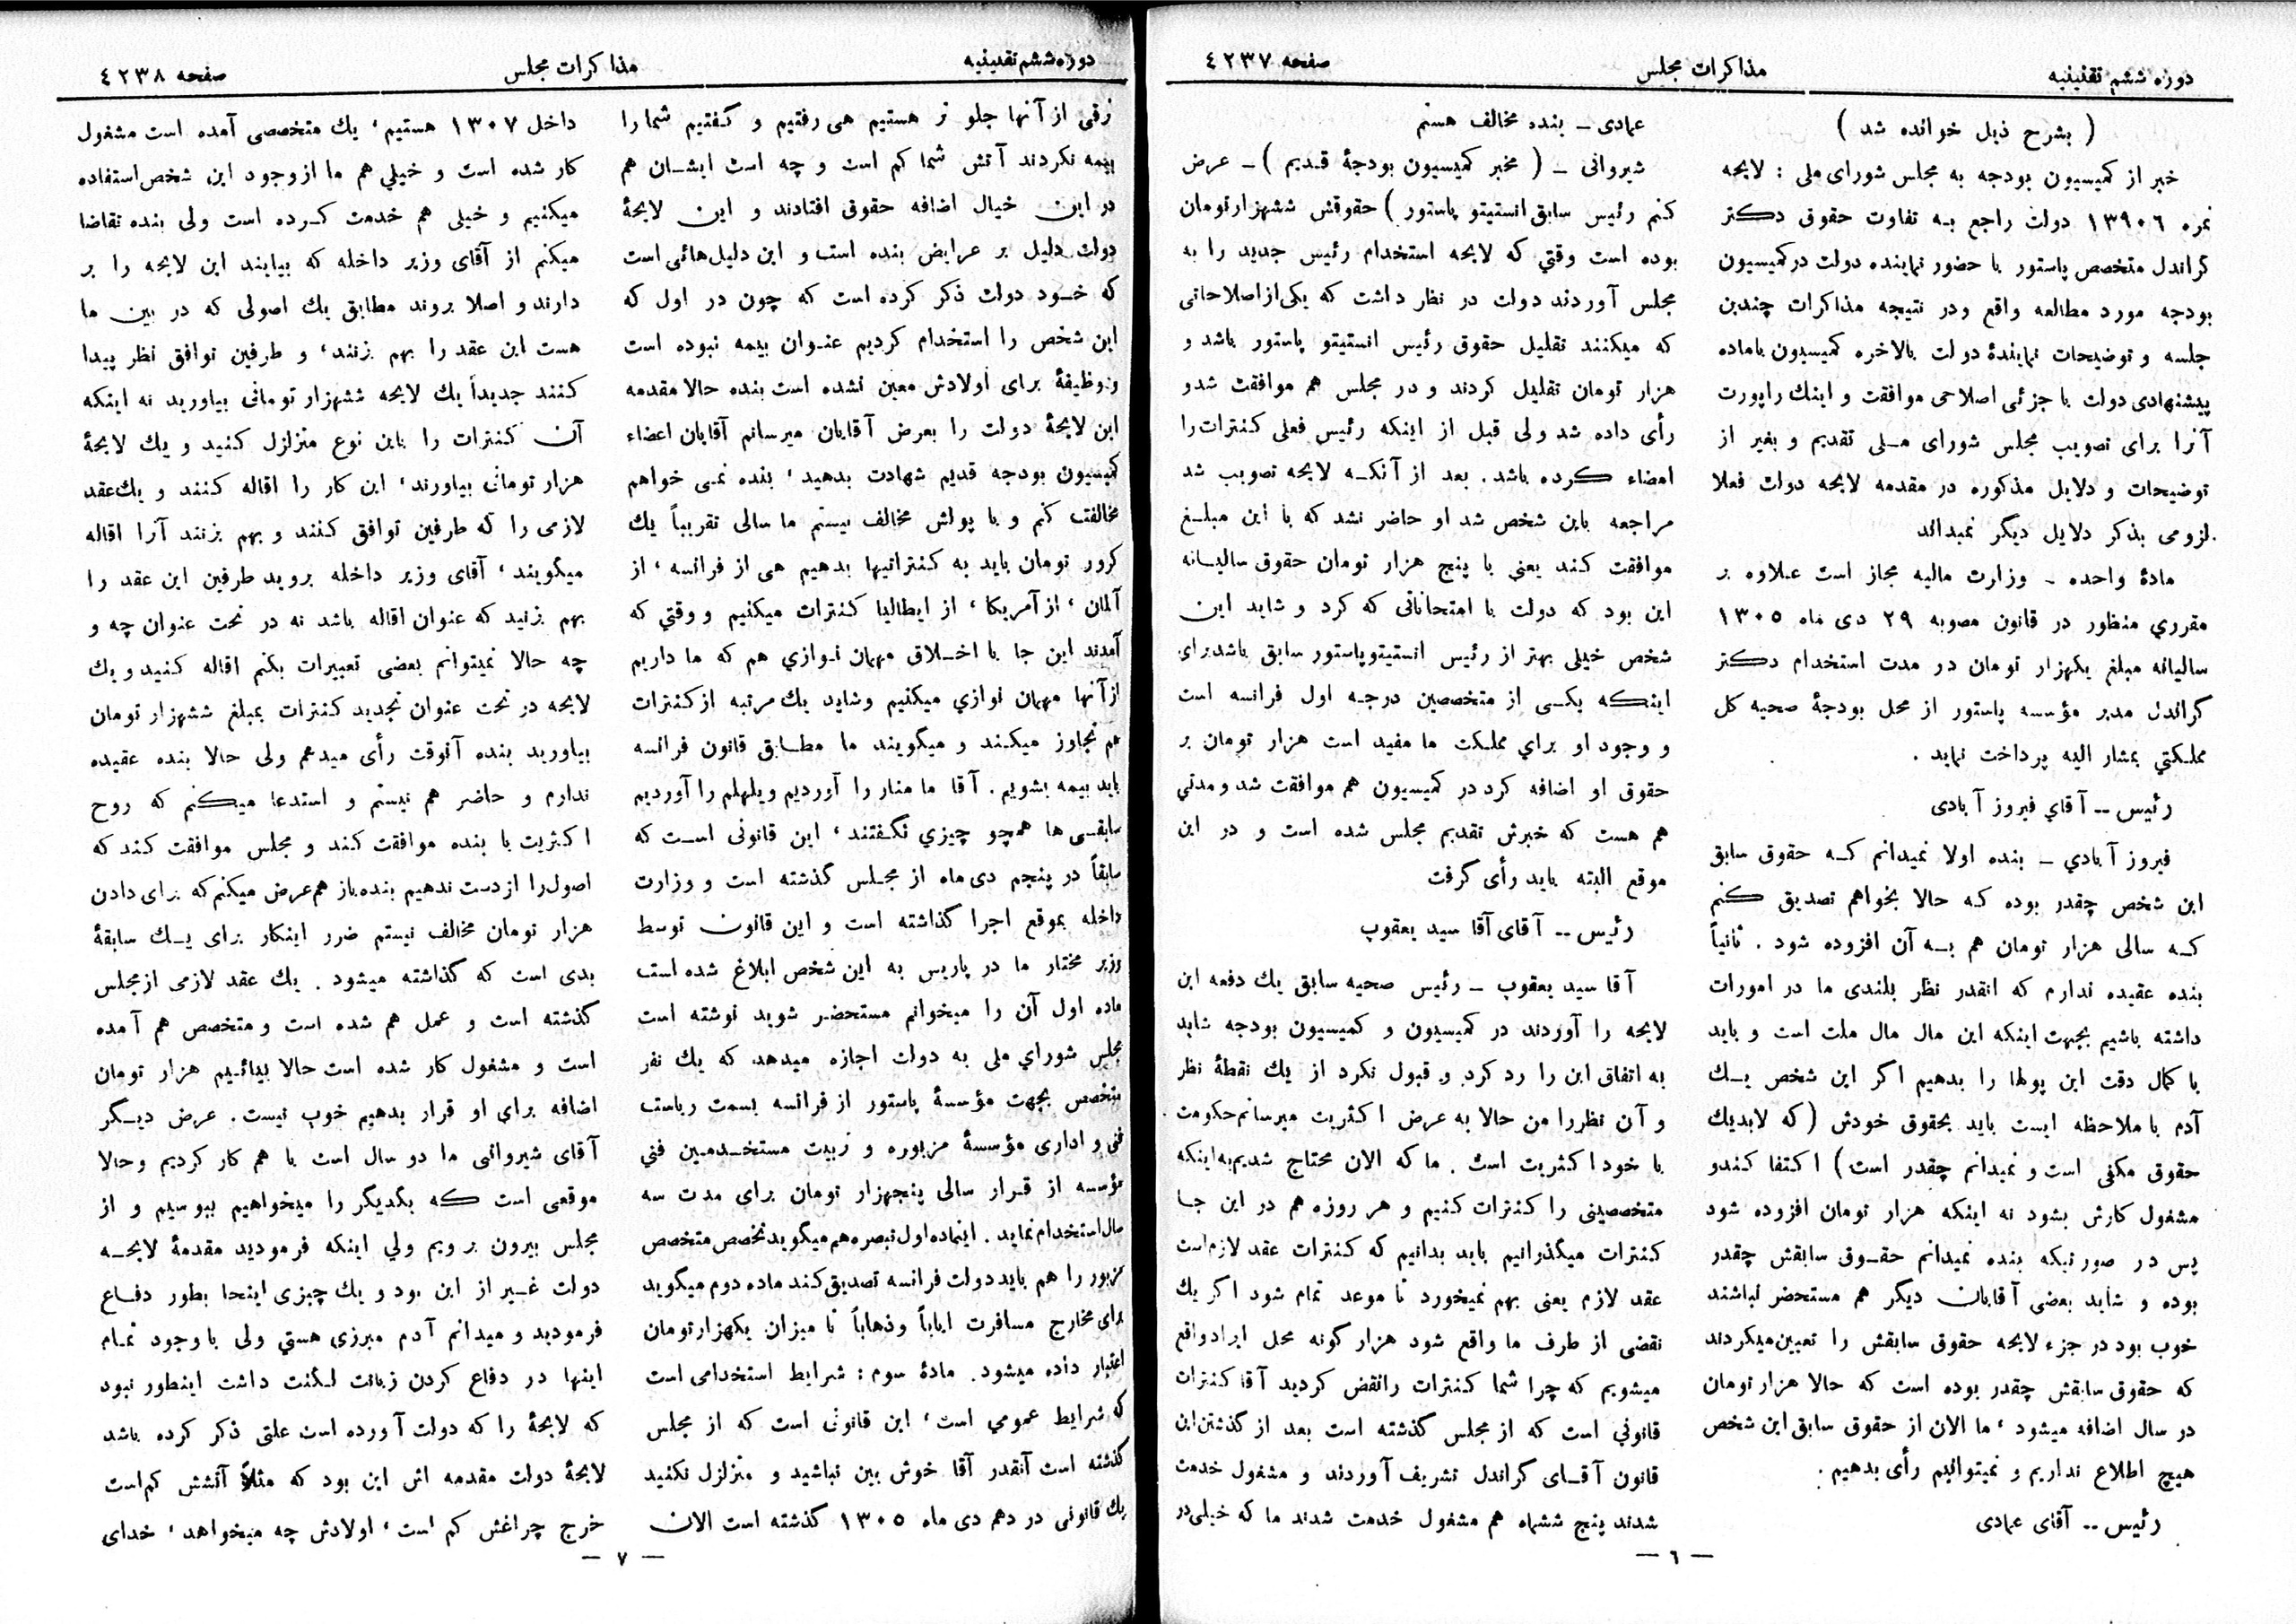 دوره ششم تقنینیه
مذاکرات مجلس
صفحه ٤٢٣٧
( بشرح ذیل خوانده شد )
خبر از کمیسیون بودجه به مجلس شورای ملی : لایحه
نمره ١٣٩٠٦ دولت راجع به تفاوت حقوق دکتر
گراندل متخصص پاستور با حضور نماینده دولت در کمیسیون
بودجه مورد مطالعه واقع ودر نتیجه مذاکرات چندین
جلسه و توضیحات نمایندهٔ دولت بالاخره کمیسیون باماده
پیشنهادی دولت با جزئی اصلاحی موافقت و اینك راپورت
آنرا برای تصویب مجلس شورای ملی تقدیم و بغیر از
توضیحات و دلایل مذکوره در مقدمه لایحه دولت فعلا
لزومی بذکر دلایل دیگر نمیداند
مادهٔ واحده ـ وزارت مالیه مجاز است علاوه بر
مقرری منظور در قانون مصوبه ٢٩ دی ماه ١٣٠٥
سالیانه مبلغ یکهزار تومان در مدت استخدام دکتر
گراندل مدیر مؤسسه پاستور از محل بودجهٔ صحیه کل
مملکتی بمشار الیه پرداخت نماید .
رئیس -- آقای فیروز آبادی
فیروز آبادی ـ بنده اولا نمیدانم که حقوق سابق
این شخص چقدر بوده که حالا بخواهم تصدیق کنم
که سالی هزار تومان هم به آن افزوده شود . ثانیاً
بنده عقیده ندارم که انقدر نظر بلندی ما در امورات
داشته باشیم بجهت اینکه این مال مال ملت است و باید
با کمال دقت این پولها را بدهیم اگر این شخص یك
آدم با ملاحظه ایست باید بحقوق خودش (که لابدیك
حقوق مکفی است و نمیدانم چقدر است) اکتفا کندو
مشغول کارش بشود نه اینکه هزار تومان افزوده شود
پس در صورتیکه بنده نمیدانم حقوق سابقش چقدر
بوده و شاید بعضی آقایان دیگر هم مستحضر نباشند
خوب بود در جزء لایحه حقوق سابقش را تعیین میکردند
که حقوق سابقش چقدر بوده است که حالا هزار تومان
در سال اضافه میشود ، ما الان از حقوق سابق این شخص
هیچ اطلاع نداریم و نمیتوانیم رأی بدهیم .
رئیس -- آقای عمادی
عمادی ـ بنده مخالف هستم
شیروانی ـ ( مخبر کمیسیون بودجهٔ قدیم ) ـ عرض
کنم رئیس سابق انستیتو پاستور) حقوقش ششهزارتومان
بوده است وقتی که لایحه استخدام رئیس جدید را به
مجلس آوردند دولت در نظر داشت که یکی از اصلاحاتی
که میکنند تقلیل حقوق رئیس انستیتو پاستور باشد و
هزار تومان تقلیل کردند و در مجلس هم موافقت شدو
رأی داده شد ولی قبل از اینکه رئیس فعلی کنترات را
امضاء کرده باشد . بعد از آنکه لایحه تصویب شد
مراجعه باین شخص شد او حاضر نشد که با این مبلغ
موافقت کند یعنی با پنج هزار تومان حقوق سالیانه
این بود که دولت با امتحاناتی که کرد و شاید این
شخص خیلی بهتر از رئیس انستیتو پاستور سابق باشد برای
اینکه یکی از متخصصین درجه اول فرانسه است
و وجود او برای مملکت ما مفید است هزار تومان بر
حقوق او اضافه کرد در کمیسیون هم موافقت شد و مدتی
هم هست که خبرش تقدیم مجلس شده است و در این
موقع البته باید رأی گرفت
رئیس -- آقای آقا سید یعقوب
آقا سید یعقوب ـ رئیس صحیه سابق یك دفعه این
لایحه را آوردند در کمیسیون و کمیسیون بودجه شاید
به اتفاق این را رد کرد و قبول نکرد از یك نقطهٔ نظر
و آن نظررا من حالا به عرض اکثریت میرسانم حکومت
با خود اکثریت است . ما که الان محتاج شدیم به اینکه
متخصصینی را کنترات کنیم و هر روزه هم در این جا
کنترات میگذرانیم باید بدانیم که کنترات عقد لازم است
عقد لازم یعنی بهم نمیخورد تا موعد تمام شود اگر یك
نقضی از طرف ما واقع شود هزار گونه محل ایراد واقع
میشویم که چرا شما کنترات رانقض کردید آقا کنترات
قانونی است که از مجلس گذشته است بعد از گذشتن این
قانون آقای گراندل تشریف آوردند و مشغول خدمت
شدند پنج ششماه هم مشغول خدمت شدند ما که خیلی در
— ٦ —
دوره ششم تقنینیه
مذاکرات مجلس
صفحه ٤٢٣٨
ترقی از آنها جلو تر هستیم هی رفتیم و گفتیم شما را
بیمه نکردند آتش شما کم است و چه است ایشان هم
در این خیال اضافه حقوق افتادند و این لایحهٔ
دولت دلیل بر عرایض بنده است و این دلیل هائی است
که خود دولت ذکر کرده است که چون در اول که
این شخص را استخدام کردیم عنوان بیمه نبوده است
ووظیفهٔ برای اولادش معین نشده است بنده حالا مقدمه
این لایحهٔ دولت را بعرض آقایان میرسانم آقایان اعضاء
کمیسیون بودجه قدیم شهادت بدهید ، بنده نمی خواهم
مخالفت کنم و با پولش مخالف نیستم ما سالی تقریباً یك
کرور تومان باید به کنتراتیها بدهیم هی از فرانسه ، از
آلمان ، از آمریکا ، از ایطالیا کنترات میکنیم و وقتی که
آمدند این جا با اخلاق مهمان نوازی هم که ما داریم
از آنها مهمان نوازی میکنیم وشاید یك مرتبه از کنترات
هم تجاوز میکند و میگویند ما مطابق قانون فرانسه
باید بیمه بشویم . آقا ما منار را آوردیم ویلهلم را آوردیم
سابقی ها همچو چیزی نگفتند ، این قانونی است که
سابقاً در پنجم دی ماه از مجلس گذشته است و وزارت
داخله بموقع اجرا گذاشته است و این قانون توسط
وزیر مختار ما در پاریس به این شخص ابلاغ شده است
ماده اول آن را میخوانم مستحضر شوید نوشته است
مجلس شورای ملی به دولت اجازه میدهد که یك نفر
متخصص بجهت مؤسسهٔ پاستور از فرانسه بسمت ریاست
فنی و اداری مؤسسهٔ مزبوره و تربیت مستخدمین فنی
مؤسسه از قرار سالی پنجهزار تومان برای مدت سه
سال استخدام نماید . اینماده اول تبصره هم میگوید تخصص متخصص
مزبور را هم باید دولت فرانسه تصدیق کند ماده دوم میگوید
برای مخارج مسافرت ایاباً وذهاباً تا میزان یکهزار تومان
اعتبار داده میشود . مادهٔ سوم : شرایط استخدامی است
که شرایط عمومی است ، این قانونی است که از مجلس
گذشته است آنقدر آقا خوش بین نباشید و متزلزل نکنید
یك قانونی در دهم دی ماه ١٣٠٥ گذشته است الان
داخل ١٣٠٧ هستیم ، یك متخصصی آمده است مشغول
کار شده است و خیلی هم ما از وجود این شخص استفاده
میکنیم و خیلی هم خدمت کرده است ولی بنده تقاضا
میکنم از آقای وزیر داخله که بیایند این لایحه را بر
دارند و اصلا بروند مطابق یك اصولی که در بین ما
هست این عقد را بهم بزنند ، و طرفین توافق نظر پیدا
کنند جدیداً یك لایحه ششهزار تومانی بیاورید نه اینکه
آن کنترات را باین نوع متزلزل کنید و یك لایحهٔ
هزار تومانی بیاورند ، این کار را اقاله کنند و یك عقد
لازمی را که طرفین توافق کنند و بهم بزنند آنرا اقاله
میگویند ، آقای وزیر داخله بروید طرفین این عقد را
بهم بزنید که عنوان اقاله باشد نه در تحت عنوان چه و
چه حالا نمیتوانم بعضی تعبیرات بکنم اقاله کنید و یك
لایحه در تحت عنوان تجدید کنترات بمبلغ ششهزار تومان
بیاورید بنده آنوقت رأی میدهم ولی حالا بنده عقیده
ندارم و حاضر هم نیستم و استدعا میکنم که روح
اکثریت با بنده موافقت کند و مجلس موافقت کند که
اصول را از دست ندهیم بنده باز هم عرض میکنم که برای دادن
هزار تومان مخالف نیستم ضرر اینکار برای یك سابقهٔ
بدی است که گذاشته میشود . یك عقد لازمی از مجلس
گذشته است و عمل هم شده است و متخصص هم آمده
است و مشغول کار شده است حالا بیائیم هزار تومان
اضافه برای او قرار بدهیم خوب نیست . عرض دیگر
آقای شیروانی ما دو سال است با هم کار کردیم وحالا
موقعی است که یکدیگر را میخواهیم ببوسیم و از
مجلس بیرون برویم ولی اینکه فرمودید مقدمهٔ لایحه
دولت غیر از این بود و یك چیزی اینجا بطور دفاع
فرمودید و میدانم آدم مبرزی هستی ولی با وجود تمام
اینها در دفاع کردن زبانت لکنت داشت اینطور نبود
که لایحهٔ را که دولت آورده است علتی ذکر کرده باشد
لایحهٔ دولت مقدمه اش این بود که مثلاً آتشش کم است
خرج چراغش کم است ، اولادش چه میخواهد ، خدای
— ٧ —